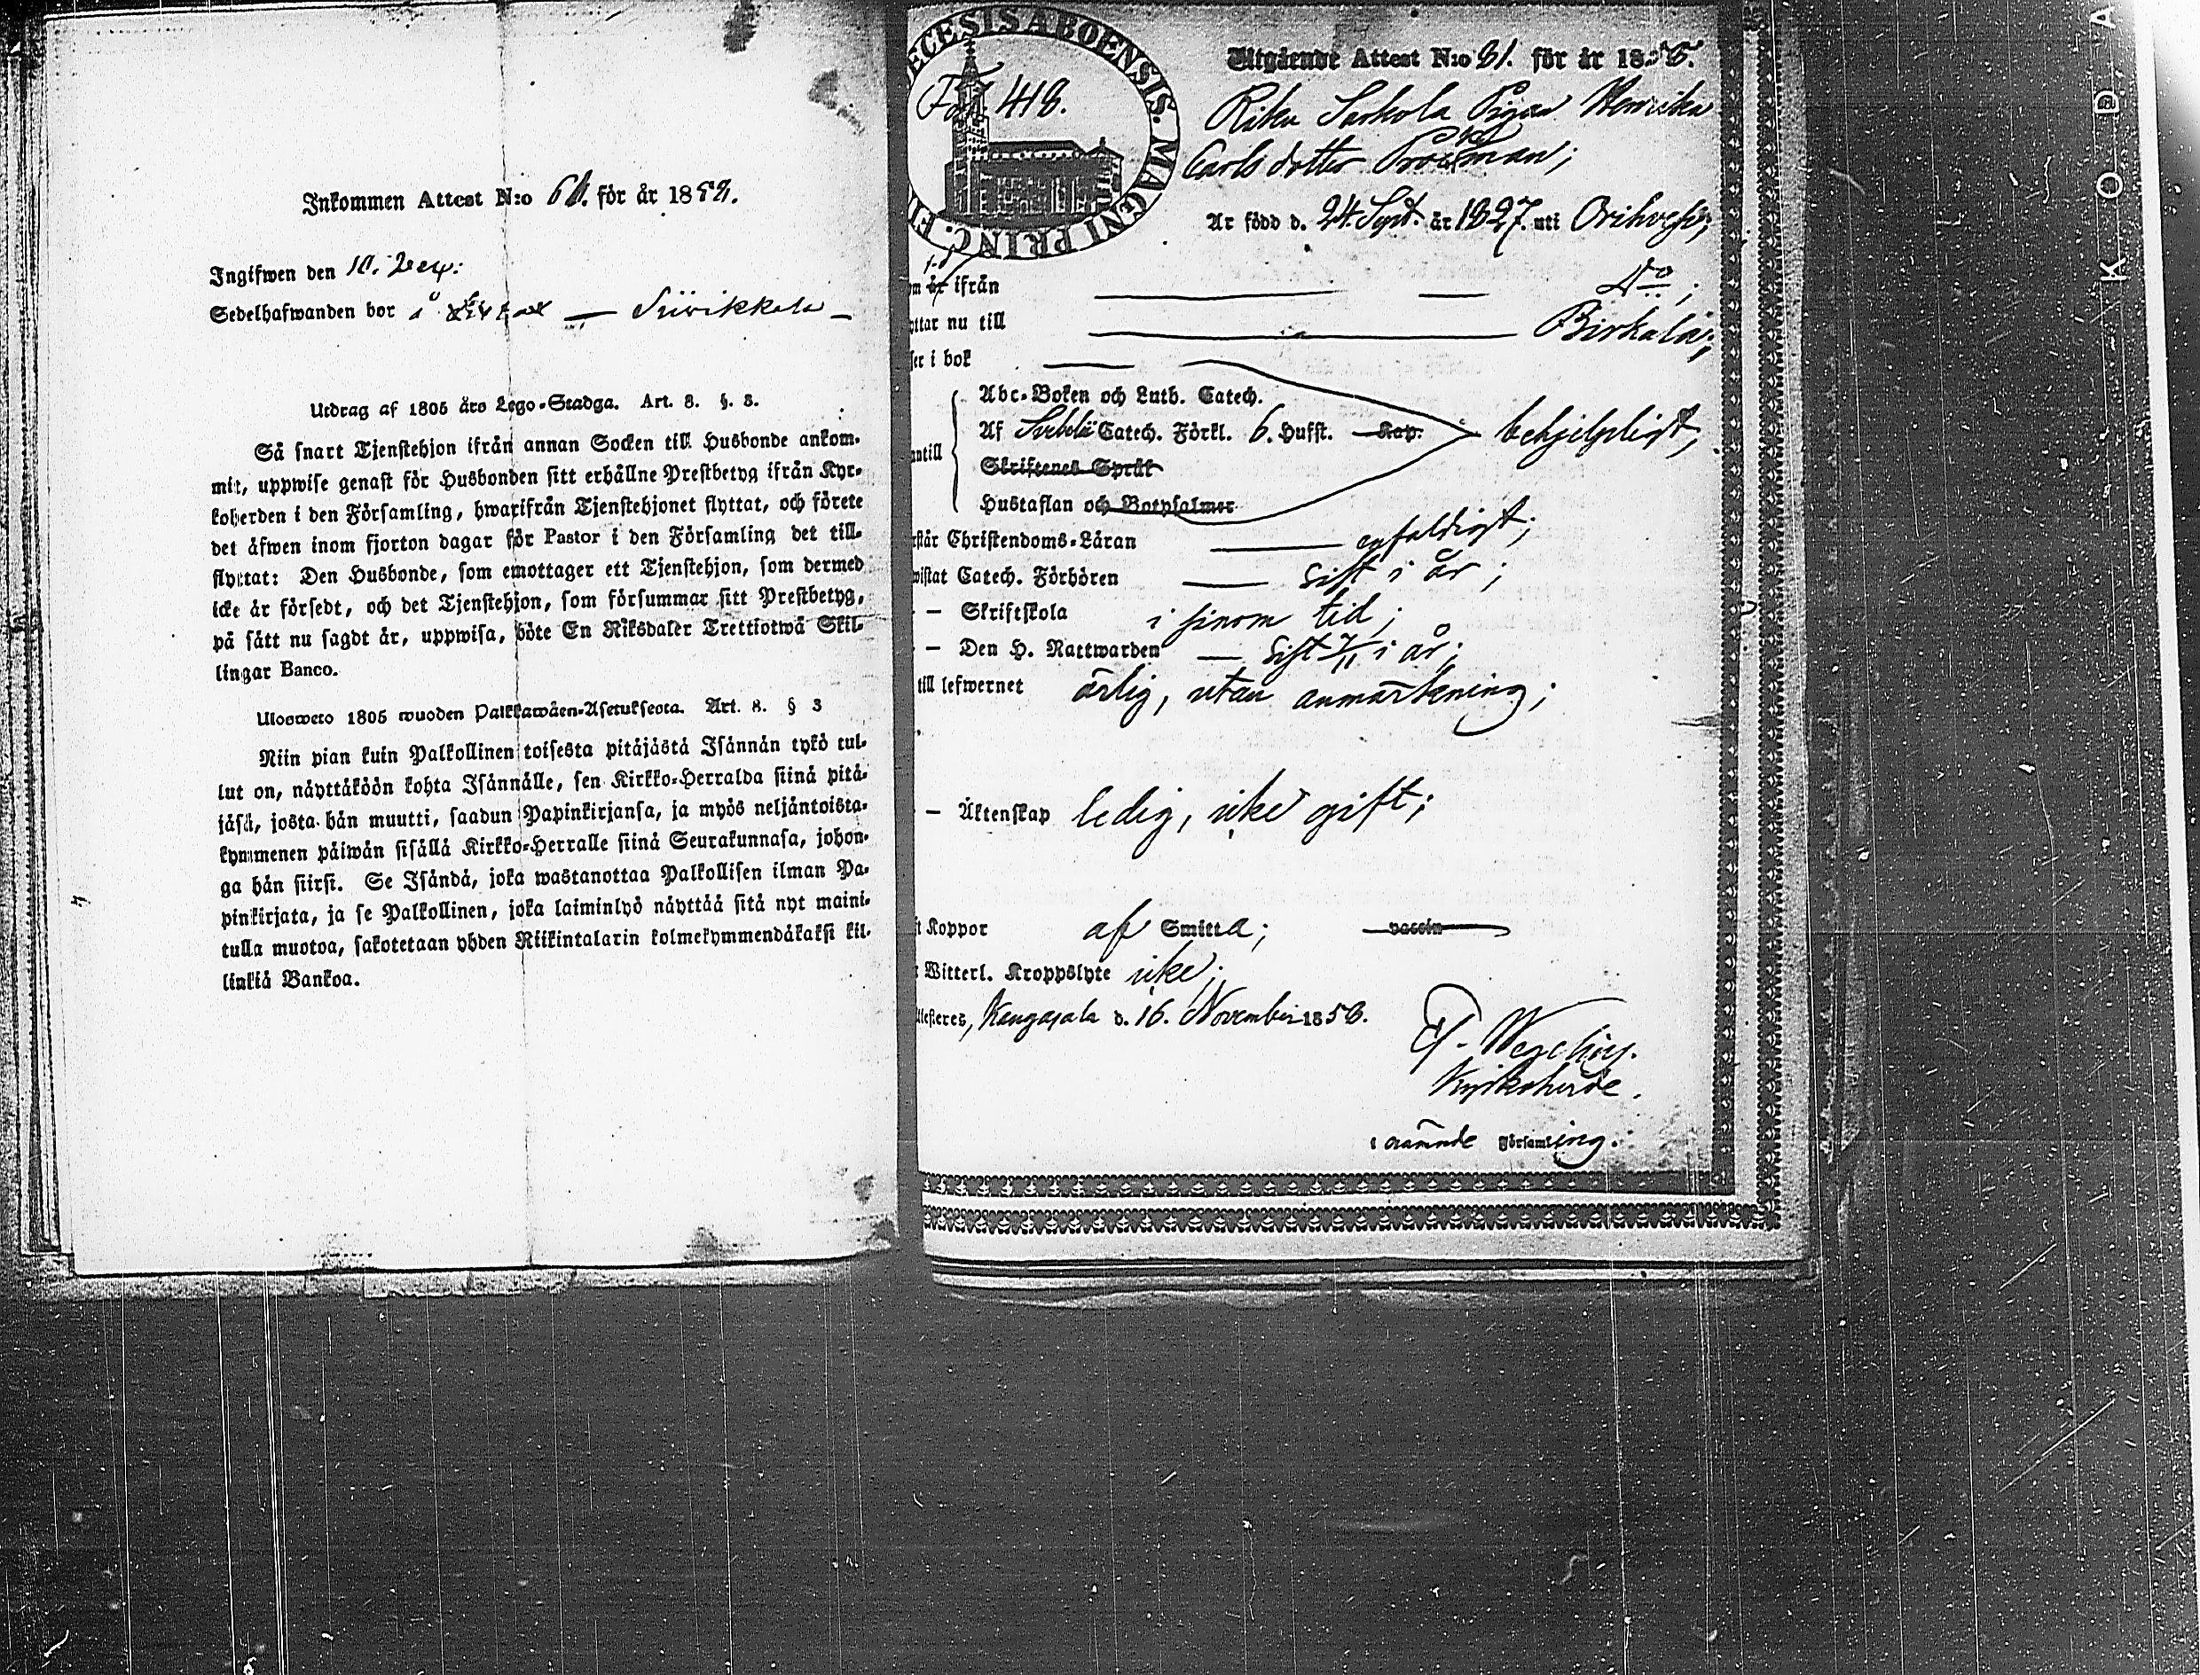 Inkommen Attest N:o för år 18
Ingifwen den 10.
Sedelhafwanden bor å — Siivikkala —
Utdrag af 1805 års Lego-Stadga. Art. 8. §. 3.
Så snart Tjenstehjon ifrån annan Socken till Husbonde ankom-
mit, uppwise genast för Husbonden sitt erhållne Prestbetyg ifrån Kyr-
koherden i den Församling, hwarifrån Tjenstehjonet flyttat, och förete
det äfwen inom fjorton dagar för Pastor i den Församling det till-
flyttat: Den Husbonde, som emottager ett Tjenstehjon, som dermed
icke är försedt, och det Tjenstehjon, som försummar sitt Prestbetyg,
på sätt nu sagdt är, uppwisa, böte En Riksdaler Trettiotwå Skil-
lingar Banco.
Ulosweto 1805 wuoden Palkkawäen-Asetuksesta. Art. 8. § 3
Niin pian kuin Palkollinen toisesta pitäjästä Isännän tykö tul-
lut on, näyttäköön kohta Isännälle, sen Kirkko-Herralda siinä pitä-
jäsä, josta hän muutti, saadun Papinkirjansa, ja myös neljäntoista-
kymmenen päiwän sisällä Kirkko-Herralle siinä Seurakunnasa, johon-
ga hän siirsi. Se Isändä, joka wastanottaa Palkollisen ilman Pa-
pinkirjata, ja se Palkollinen, joka laiminlyö näyttää sitä nyt maini-
tulla muotoa, sakotetaan yhden Riikintalarin kolmekymmendäkaksi kil-
linkiä Bankoa.
ECESIS ABOENSIS. MAGNI PRINC. FI
418.
Utgående Attest N:o 31. för år 18
Sarkola Pigan Henrika
Carlsdotter
Är född d. 24. Sept. år 1827. uti Orihvesi;
ifrån — — D:o;
ttar nu till — Birkala;
ser i bok —
Abc-Boken och Luth. Catech.
Af Svebelii Catech. Förkl. 6. Hufst. Kap. behjelpligt;
antill
Skriftenes Språk
Hustaflan och Botpsalmer
rstår Christendoms-Läran — enfaldigt;
wistat Catech. Förhören — sist i år;
— Skriftskola i sinom tid;
— Den H. Nattwarden — sist 7/11 i år;
till lefwernet ärlig, utan anmärkning;
— Äktenskap ledig, icke gift;
t Koppor af Smitta; vaccin
Witterl. Kroppslyte icke;
llesteres, Kangasala d. 16. November 1858.
Kyrkoherde.
i nämnde Församling.
KODA